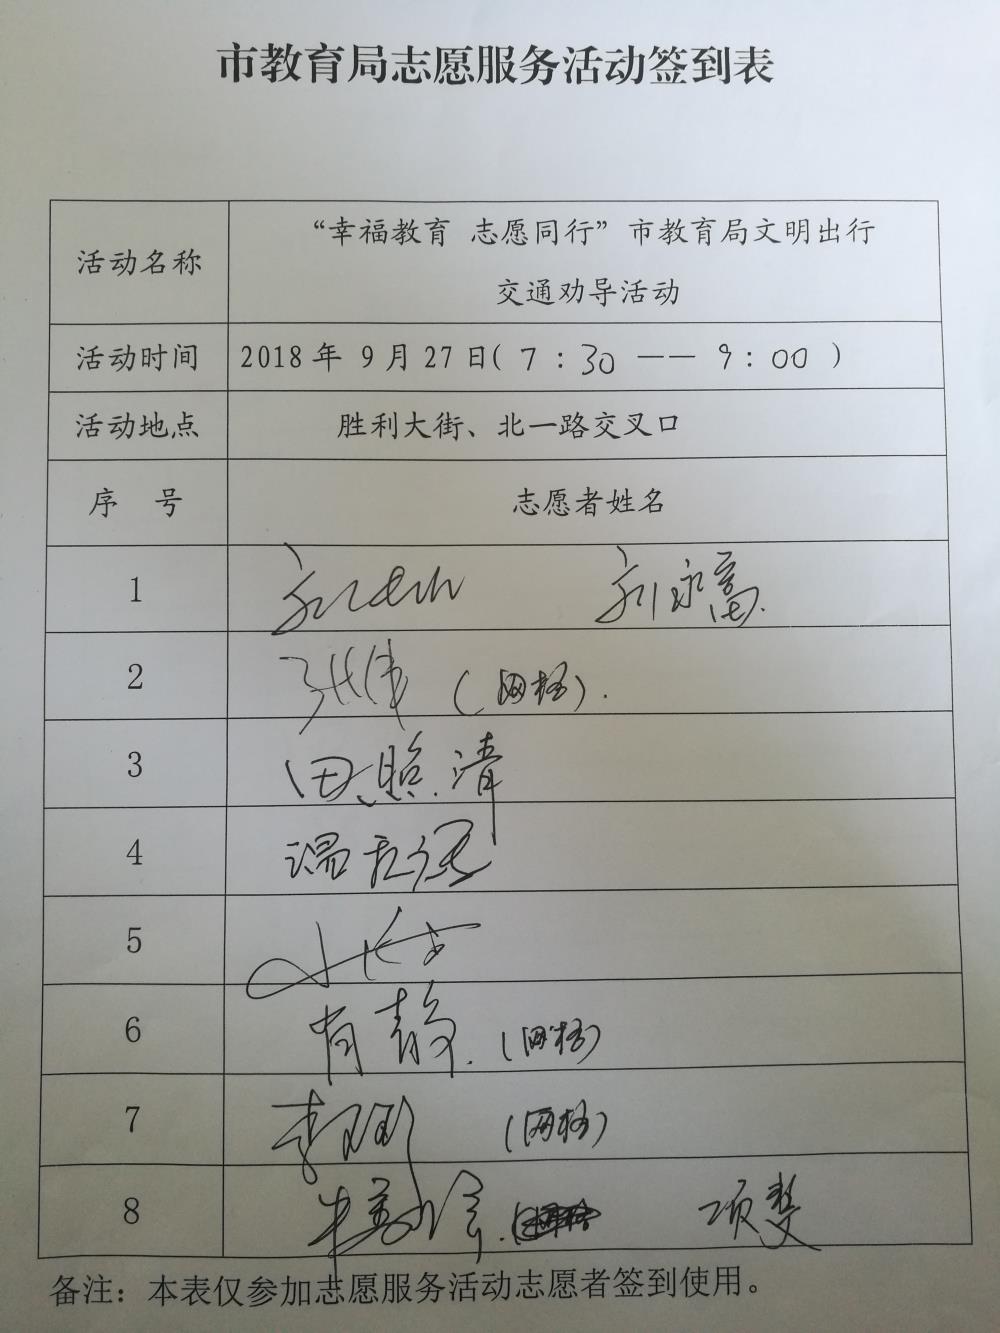 市教育局志愿服务活动签到表
活动名称
“幸福教育 志愿同行”市教育局文明出行
交通劝导活动
活动时间 2018年 9月27日( 7:30 —— 9:00 )
活动地点 胜利大街、北一路交叉口
序 号 志愿者姓名
1 刘永富
2 张伟 (网格).
3 田照清
4
5
6 肖静. (网格)
7 (网格)
8
备注：本表仅参加志愿服务活动志愿者签到使用。